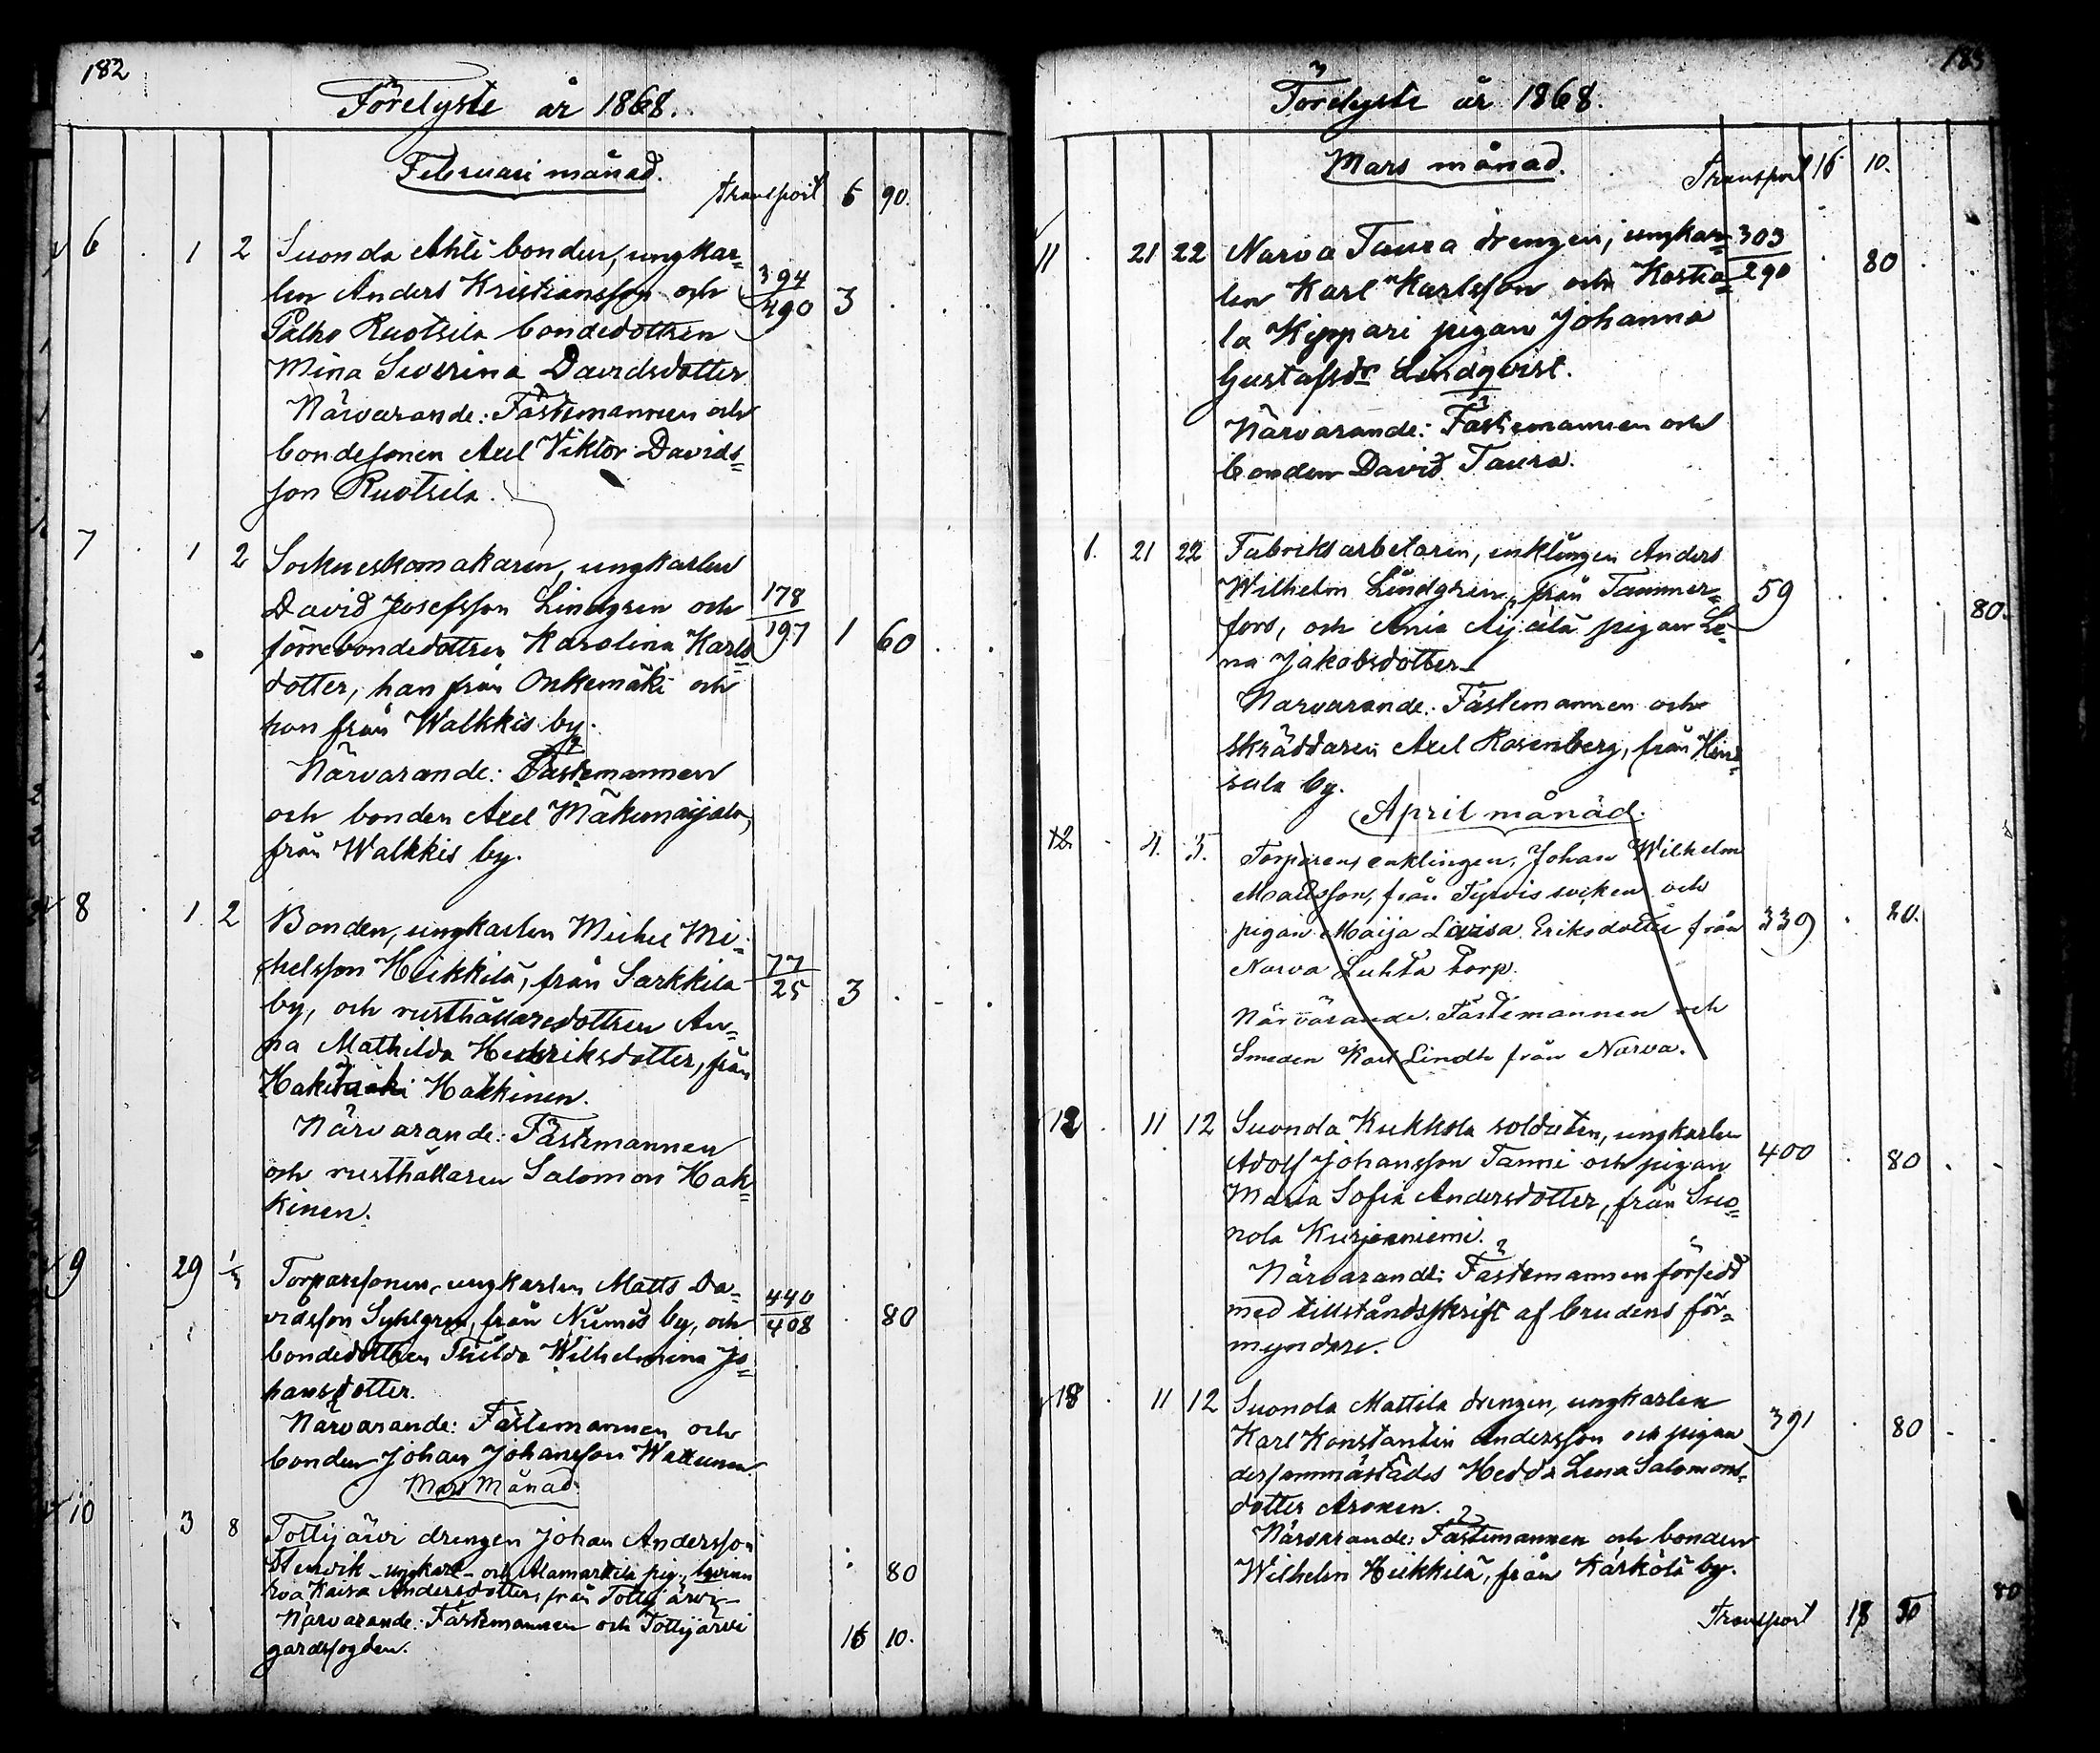 182
Förelyste år 1868.
Februari månad.
Transport 6 90.
6 1 2 Suonola Ahti bonden, ungkar=
len Anders Kristiansson och 394
490 3
Palho Ruotsila bondedottren
Mina Severina Davidsdotter
Närvarande: Fästemannen och
bondesonen Axel Viktor Davids=
son Ruotsila.
7 1 2 Sockneskomakaren, ungkarlen
David Josefsson Lindgren och 178
förrebondedottren Karolina Karls= 197 1 60
dotter, han från Onkemäki och
hon från Walkkis by.
Närvarande: Fästemannen
och bonden Axel Mäkimaijala,
från Walkkis by.
8 1 2 Bonden, ungkarlen Michel Mi=
chelsson Heikkilä, från Sarkkila 77
25 3
by, och rusthållaredottren An=
na Mathilda Hendriksdotter, från
Hakkinen.
Närvarande: Fästemannen
och rusthållaren Salomon Hak=
kinen.
9 29 1/3 Torparsonen, ungkarlen Matts Da=
vidsson Syhlgren, från Niemis by, och 440
408 80
bondedottren Thilda Wilhelmina Jo=
hansdotter.
Närvarande: Fästemannen och
bonden Johan Johansson
Mars Månad.
10 3 8 Tottijärvi drengen Johan Andersson
ungkarl och Alamartila
Eva Kaisa Andersdotter, från Tottijärvi 80
Närvarande: Fästemannen och Tottijärvi
gårdsfogden. 16 10.
183
Förelyste år 1868.
Mars månad.
Transport 16 10.
11 21 22 Narva Taura drengen, ungkar= 303
290 80
len Karl Karlsson och Kostia=
la Kippari pigan Johanna
Gustafsdr Lindqvist.
Närvarande: Fästemannen och
bonden David Taura.
1. 21 22 Fabriksarbetaren, enklingen Anders
Wilhelm Lindgren, från Tammer= 59
fors, och Ania Äijälä pigan Le= 80.
na Jakobsdotter
Närvarande: Fästemannen och
skräddaren Axel Rosenberg, från
sula by.
April månad.
12 4. 5. Torparens enklingen, Johan Wilhelm
Mattsson, från Tyrvis socken och
pigan Maija Lovisa Eriksdotter från 339 80.
Narva Luhta Torp.
Närvarande Fästemannen och
Smeden Karl Lindh från Narva.
12 11 12 Suonola Kukkola soldaten, ungkarlen
Adolf Johansson Tammi och pigan 400 80
Maria Sofia Andersdotter, från Suo=
nola Kurjenniemi.
Närvarande: Fästemannen försedd
med tillståndsskrift af brudens för=
myndare.
13 11 12 Suonola Mattila drengen, ungkarlen
Karl Konstantin Andersson och pigan 391 80
dersammastädes Hedda Lena Salomons=
dotter Aronen.
Närvarande: Fästemannen och bonden
Wilhelm Heikkilä, från Kärkölä by.
Transport 18 50 80